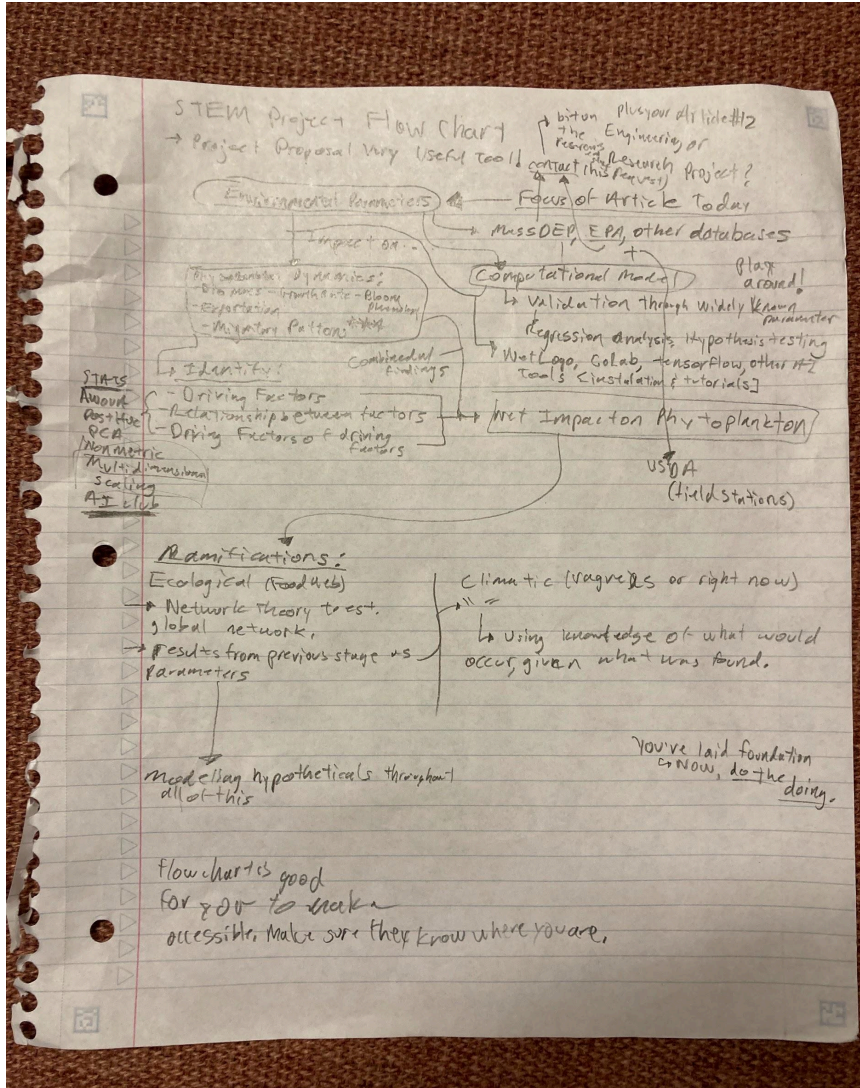 STEM Project Flow Chart
→ Project Proposal Very Useful Tool!
bit on plus your Article #12
the Engineering or
Research Project?
contact (this request)
Environmental Parameters
Focus of Article Today
Impact on...
MassDEP, EPA, other databases
+
Play
around!
Dynamics:
- Growth Rate - Bloom
- Exportation
- Migratory Pattern ****
Computational Model
↳ Validation through widely known
parameter
Regression analysis, Hypothesis testing
NetLogo, CoLab, tensorflow, other AI
Tools [installation & tutorials]
Combined
findings
→ Identify:
- Driving Factors
- Relationship between factors
- Driving Factors of driving
factors
STATS
Post Hoc
PCA
Nonmetric
Multidimensional
Scaling
AI club
Net Impact on Phytoplankton
USDA
(field stations)
Ramifications:
Ecological (Food web)
→ Network Theory to est.
global network.
→ results from previous stage as
parameters
Climatic ( or right now)
→ " "
↳ Using knowledge of what would
occur, given what was found.
Modelling hypotheticals throughout
all of this
You've laid foundation
↳ Now, do the
doing.
Flowchart is good
For you to make
accessible. Make sure they know where you are.